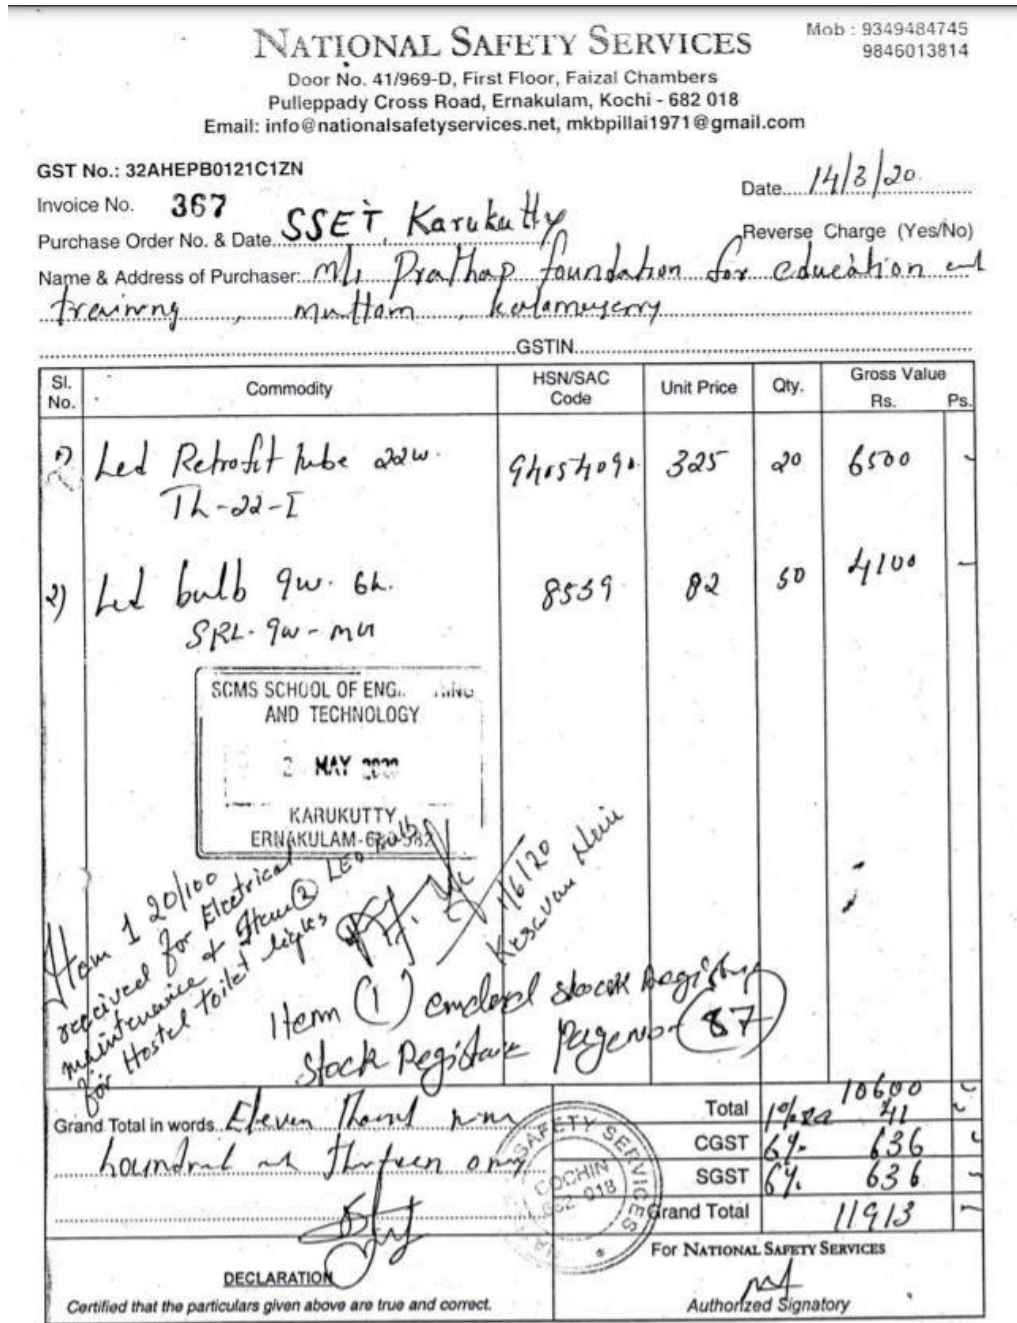 NATIONAL SAFETY SERVICES
Mob : 9349484745
9846013814
Door No. 41/969-D, First Floor, Faizal Chambers
Pulleppady Cross Road, Ernakulam, Kochi - 682 018
Email: info@nationalsafetyservices.net, mkbpillai1971@gmail.com
GST No.: 32AHEPB0121C1ZN
Date 14/3/20.
Invoice No. 367
Purchase Order No. & Date SSET, Karukutty
Reverse Charge (Yes/No)
Name & Address of Purchaser: M/s Prathap foundation for education and
training, muttom, kalamuserry
GSTIN
Sl. No. Commodity HSN/SAC Code Unit Price Qty. Gross Value Rs. Ps.
1) Led Retrofit tube 22w. 94054090. 325 20 6500 -
TL-22-I
2) Led bulb 9w. 8539 82 50 4100 -
SRL-9w-
SCMS SCHOOL OF
AND TECHNOLOGY
2 MAY 2020
KARUKUTTY
ERNAKULAM-
Item 1 20/100
received for Electrical
maintenance & Item 2 LED bulb
for Hostel toilet lights
1/6/20
Kesavan Nair
Item (1) stock Register
Stock Register Page no- 87
Total 10600 -
1% 41
CGST 6% 636 -
SGST 6% 636 -
Grand Total 11913 -
Grand Total in words Eleven
SAFETY SERVICES
COCHIN
682 018
For NATIONAL SAFETY SERVICES
DECLARATION
Certified that the particulars given above are true and correct.
Authorized Signatory